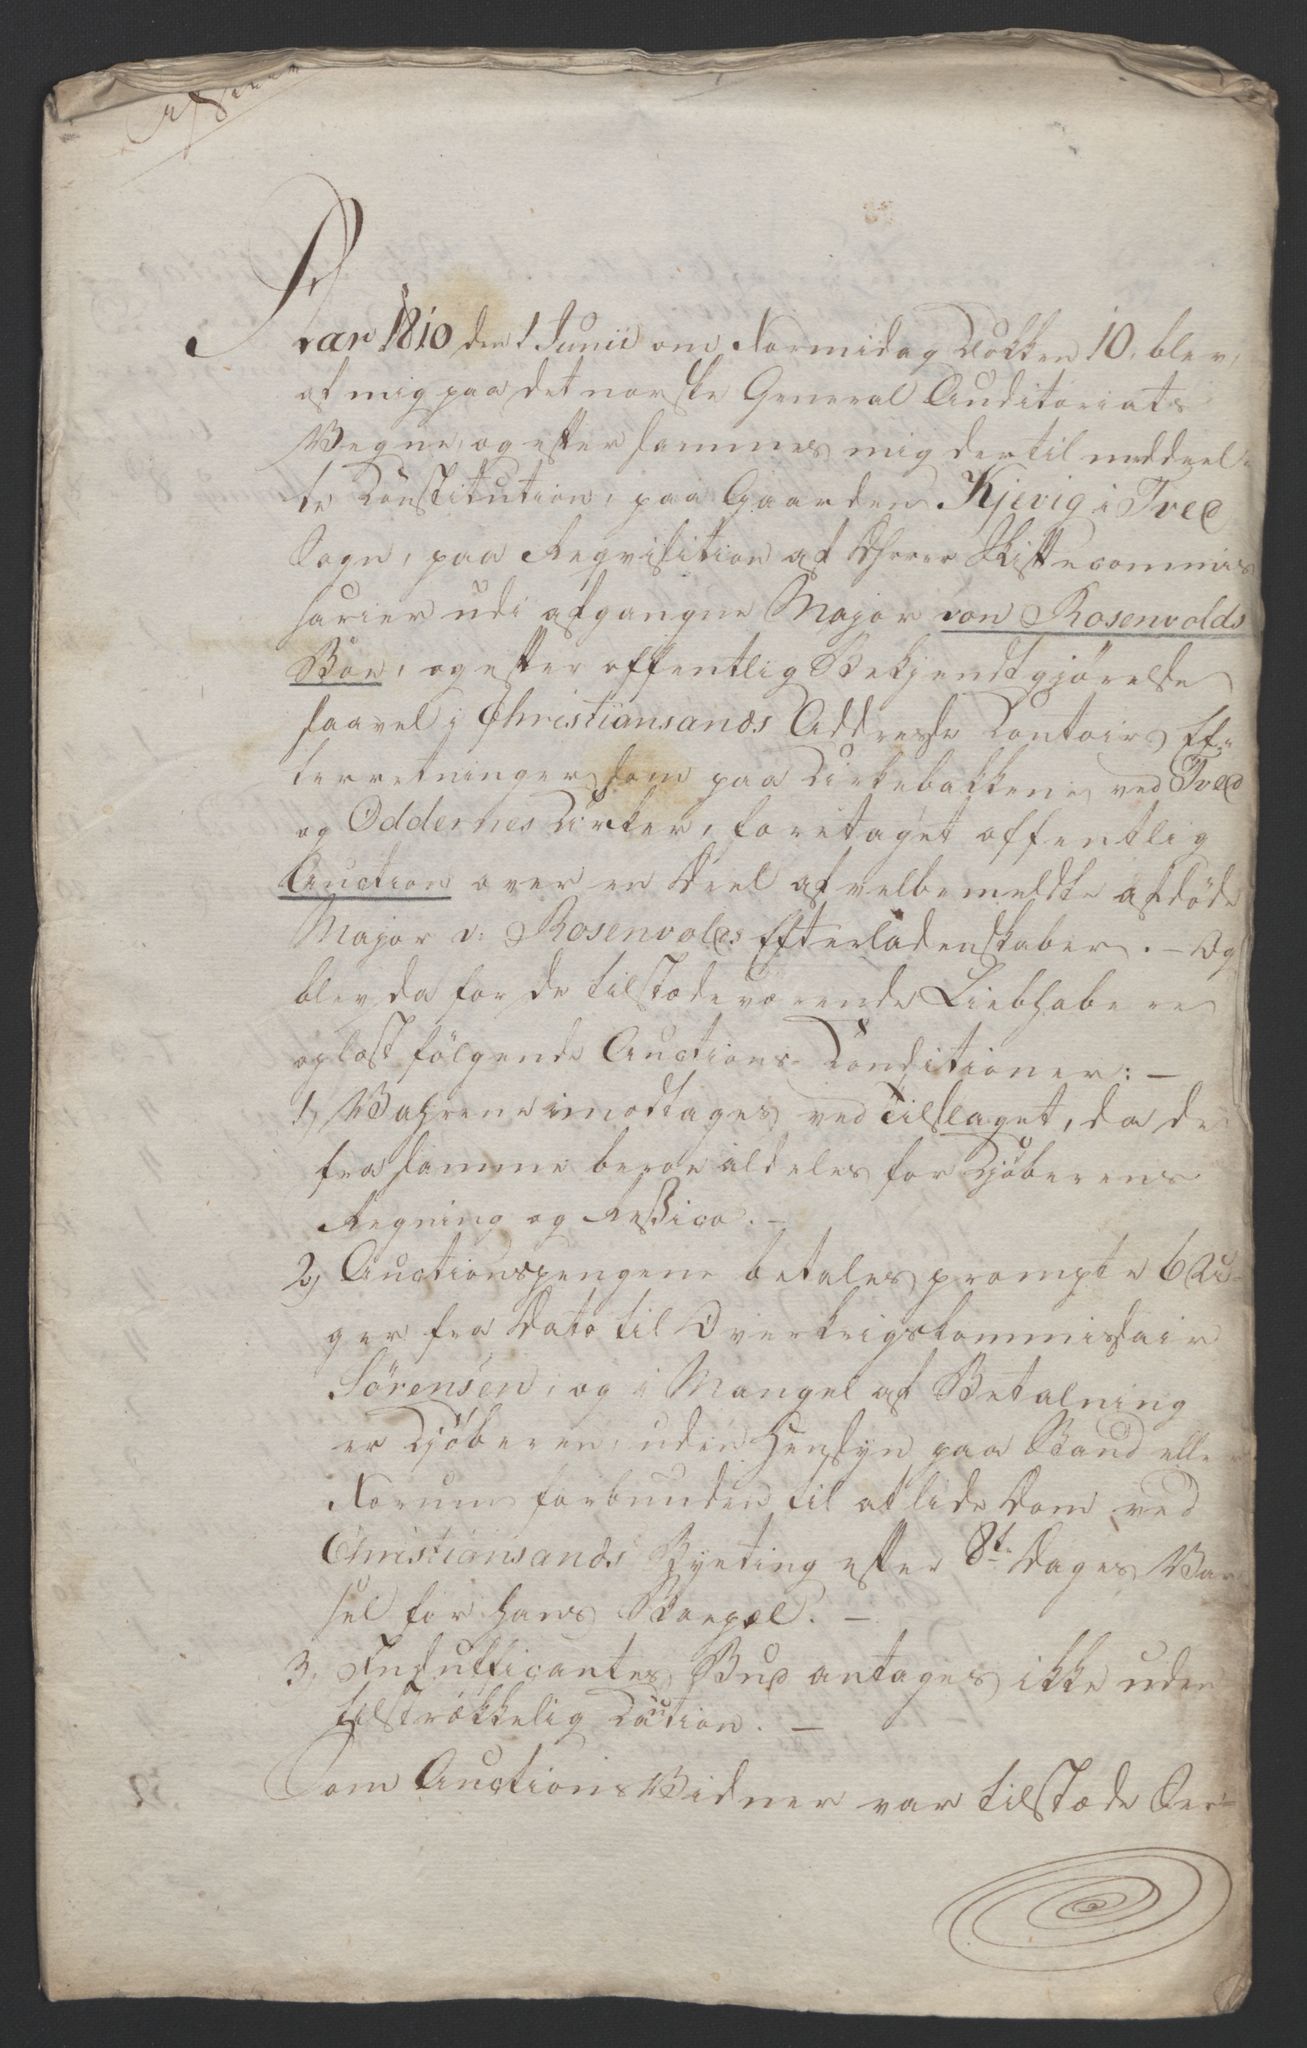 Aar 1810 den 1 Junii om Formidag Klokken 10, blev
af mig paa det norske General Auditoriats
Vegne, og efter sammes mig dertil meddeel-
te Constitution, paa Gaarden Kjevig i Tved
Sogn, paa Reqvisition af Dhrrer Skiftecommis
sarier udi afgangne Major von Rosenvolds
Boe, og efter offentlig Bekjendtgjørelse
saavel i Christiansands Addresse Contoirs Ef-
terretninger som paa Kirkebakkene ved Tved
og Oddernes Kirker, foretaget offentlig
Auction over en Deel af velbemeldte afdøde
Major v: Rosenvolds Efterladenskaber. – Og
blev da for de tilstædeværende Liebhabere
oplæst følgende Auctions Conditioner: –
1, Vahrene imottages ved Tilslaget, da de
fra samme beroe aldeles for Kjøberens
Regning og Ressico. –
2, Auctionspengene betales prompte 6 Ui-
ger fra Dato til Overkrigskommissair
Sørensen, og i Mangel af Betalning
er Kjøberen, uden Hensyn paa Stand eller
Forum forbunden til at lide Dom ved
Christiansands Byeting efter 8te Dages Var
sel for hans Bopæl. –
3, Insufficantes Bud antages ikke uden
tilstrækkelig Caution. –
Som Auctions Vidner var tilstæde Ser-